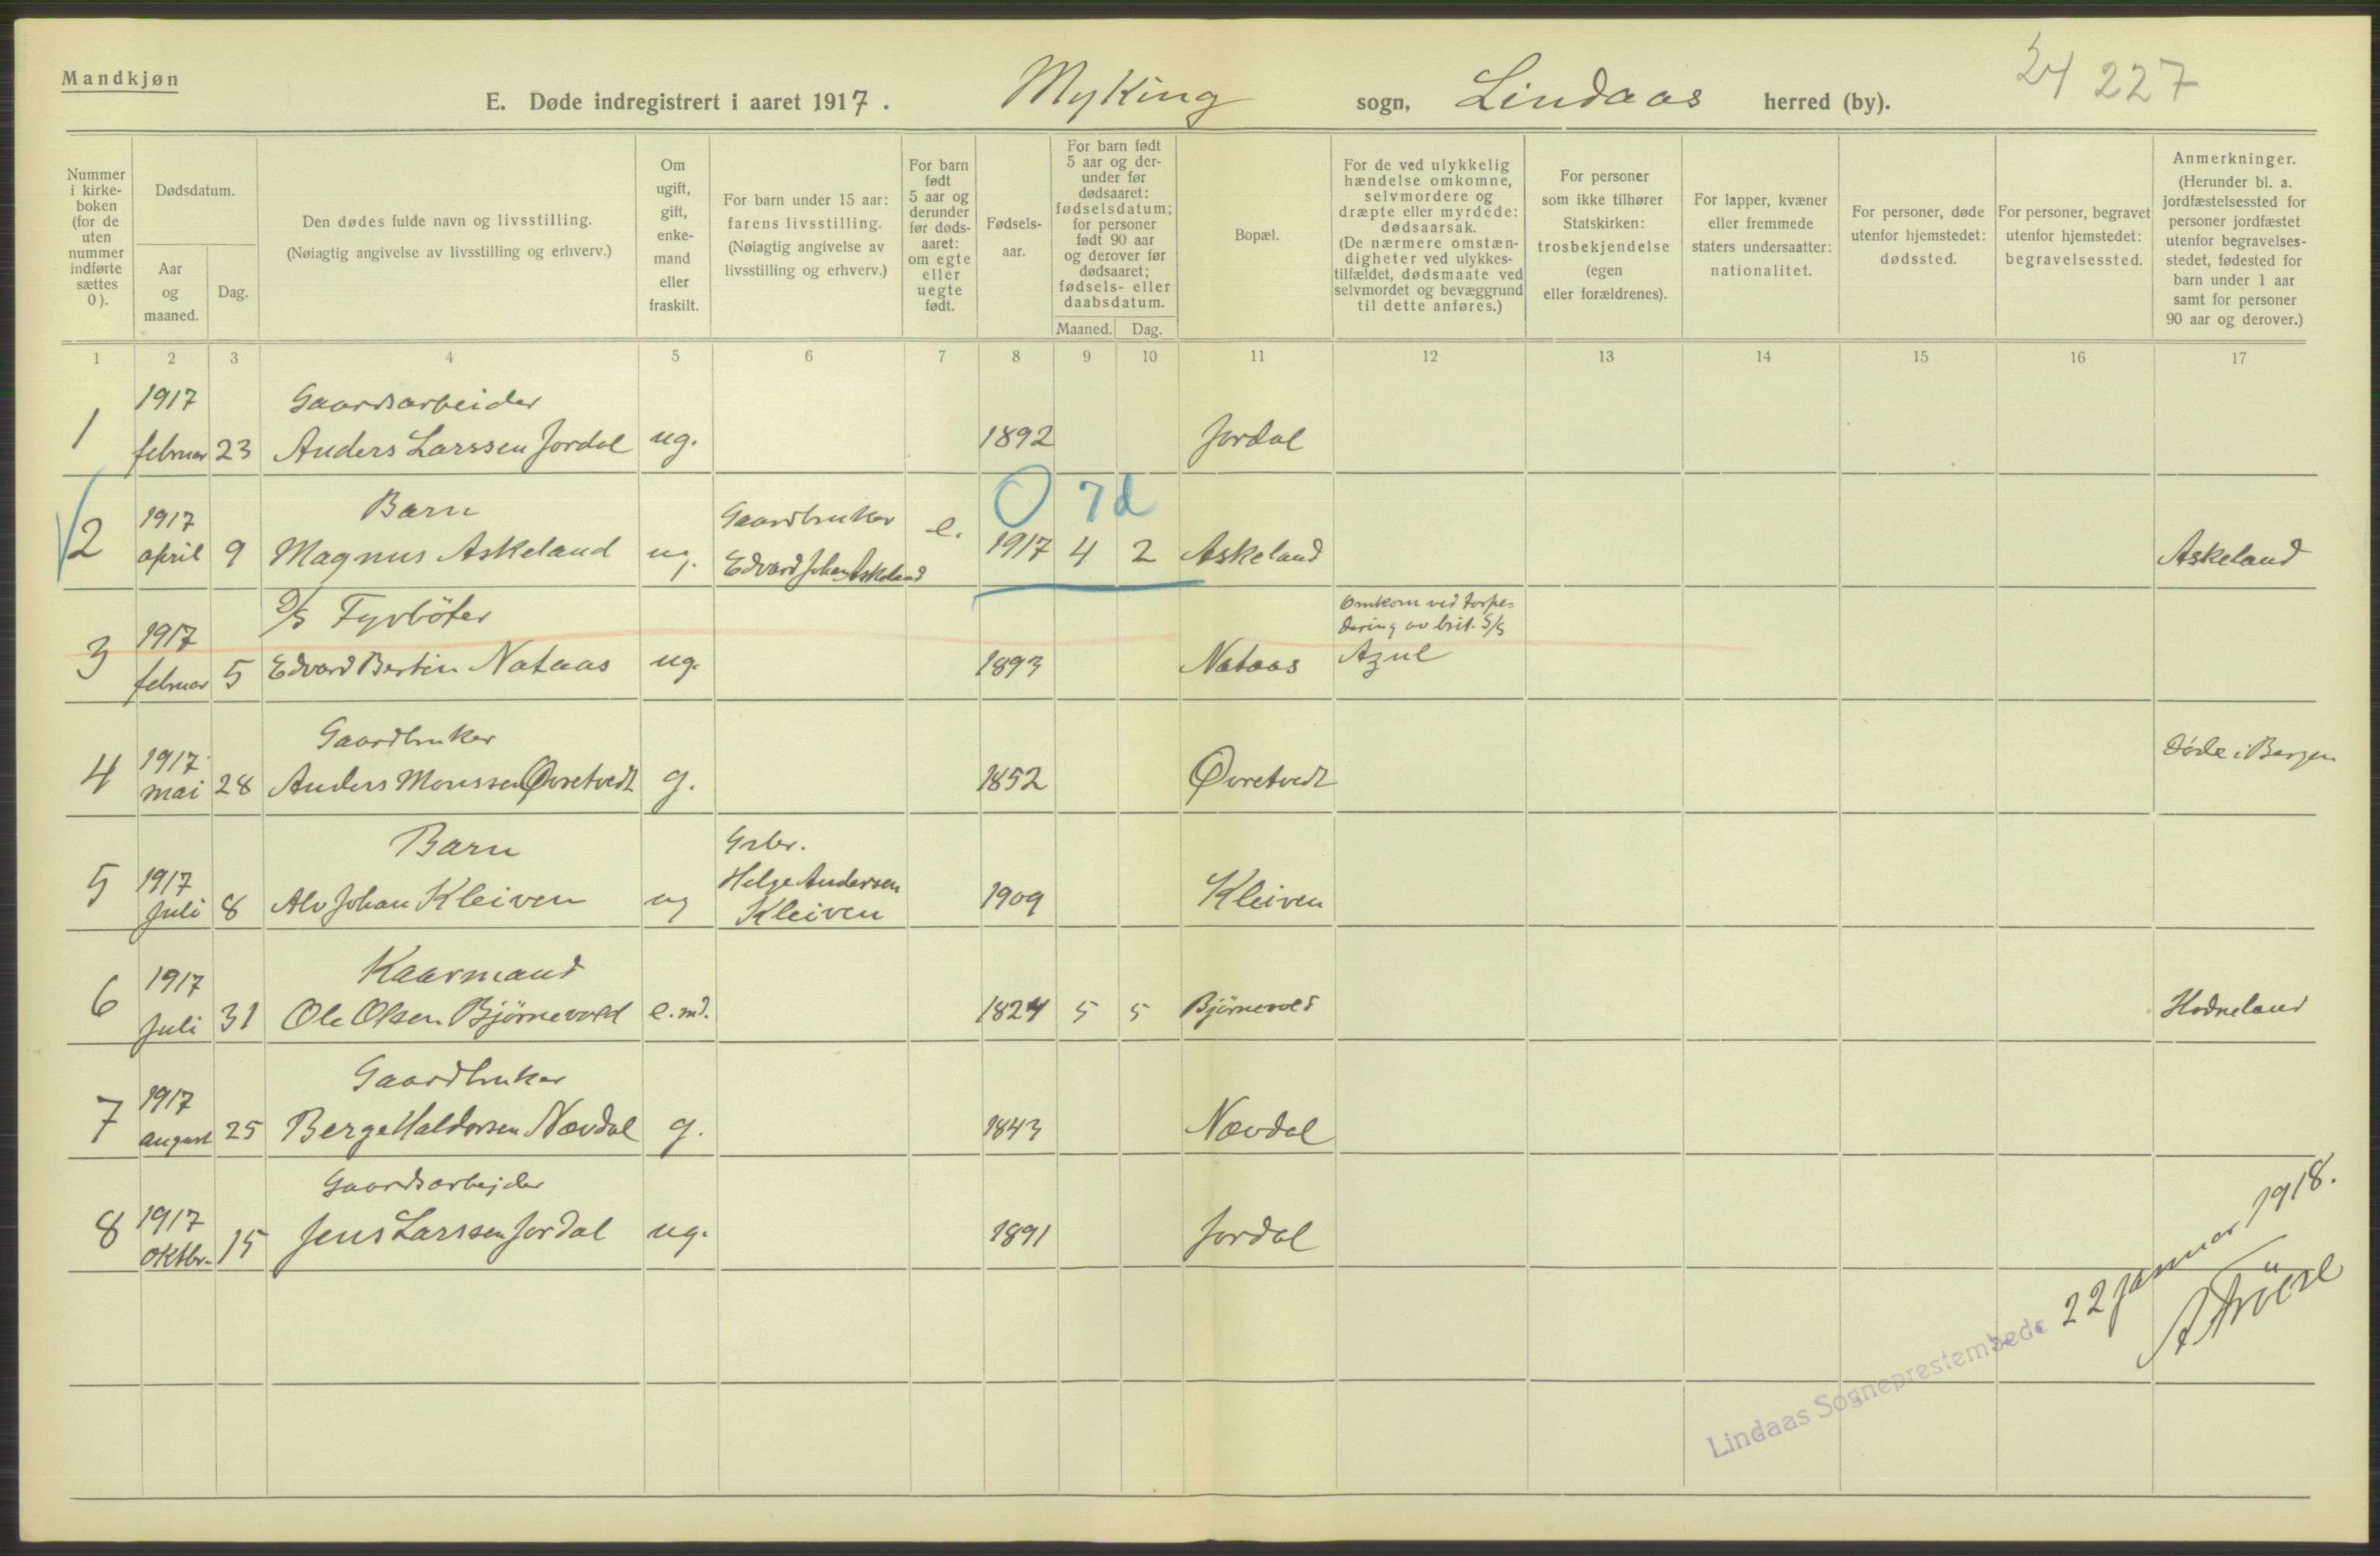 Mandkjøn
E. Døde indregistrert i aaret 1917. Myking sogn, Lindaas herred (by).
227
Nummer i kirkeboken (for de uten nummer indførte sættes 0).
Dødsdatum.
Aar og maaned.
Dag.
Den dødes fulde navn og livsstilling.
(Nøiagtig angivelse av livsstilling og erhverv.)
Om ugift, gift, enkemand eller fraskilt.
For barn under 15 aar: farens livsstilling.
(Nøiagtig angivelse av livsstilling og erhverv.)
For barn født 5 aar og derunder før dødsaaret: om egte eller uegte født.
Fødselsaar.
For barn født 5 aar og derunder før dødsaaret: fødselsdatum; for personer født 90 aar og derover før dødsaaret; fødsels- eller daabsdatum.
Maaned. Dag.
Bopæl.
For de ved ulykkelig hændelse omkomne, selvmordere og dræpte eller myrdede: dødsaarsak.
(De nærmere omstændigheter ved ulykkestilfældet, dødsmaate ved selvmordet og bevæggrund til dette anføres.)
For personer som ikke tilhører Statskirken: trosbekjendelse (egen eller forældrenes).
For lapper, kvæner eller fremmede staters undersaatter: nationalitet.
For personer, døde utenfor hjemstedet: dødssted.
For personer, begravet utenfor hjemstedet: begravelsessted.
Anmerkninger.
(Herunder bl. a. jordfæstelsessted for personer jordfæstet utenfor begravelsesstedet, fødested for barn under 1 aar samt for personer 90 aar og derover.)
1 2 3 4 5 6 7 8 9 10 11 12 13 14 15 16 17
1917 Gaardsarbeider
1 februar 23 Anders Larssen Jordal ug. 1892 Jordal
0 7d
1917 Barn Gaardbruker e.
2 april 9 Magnus Askeland ug. Edvard Johan Askeland 1917 4 2 Askeland Askeland
1917 D/S Fyrbøter Omkom ved torpedering av brit. S/S
3 februar 5 Edvard Bertin Nataas ug. 1893 Nataas Azul
1917 Gaardbruker
4 mai 28 Anders Monssen Øvretvedt g. 1852 Øvretvedt Døde i Bergen
1917 Barn Grbr.
5 Juli 8 Alv Johan Kleiven ug Helge Andersen Kleiven 1909 Kleiven
1917 Kaarmand
6 Juli 31 Ole Olsen Bjørnevold e.md. 1824 5 5 Bjørnevold Hodneland
1917 Gaardbruker
7 august 25 Berge Haldorsen Nævdal g. 1843 Nævdal
1917 Gaardsarbejder
8 oktbr. 15 Jens Larssen Jordal ug. 1891 Jordal
Lindaas Sogneprestembede 22 januar 1918.